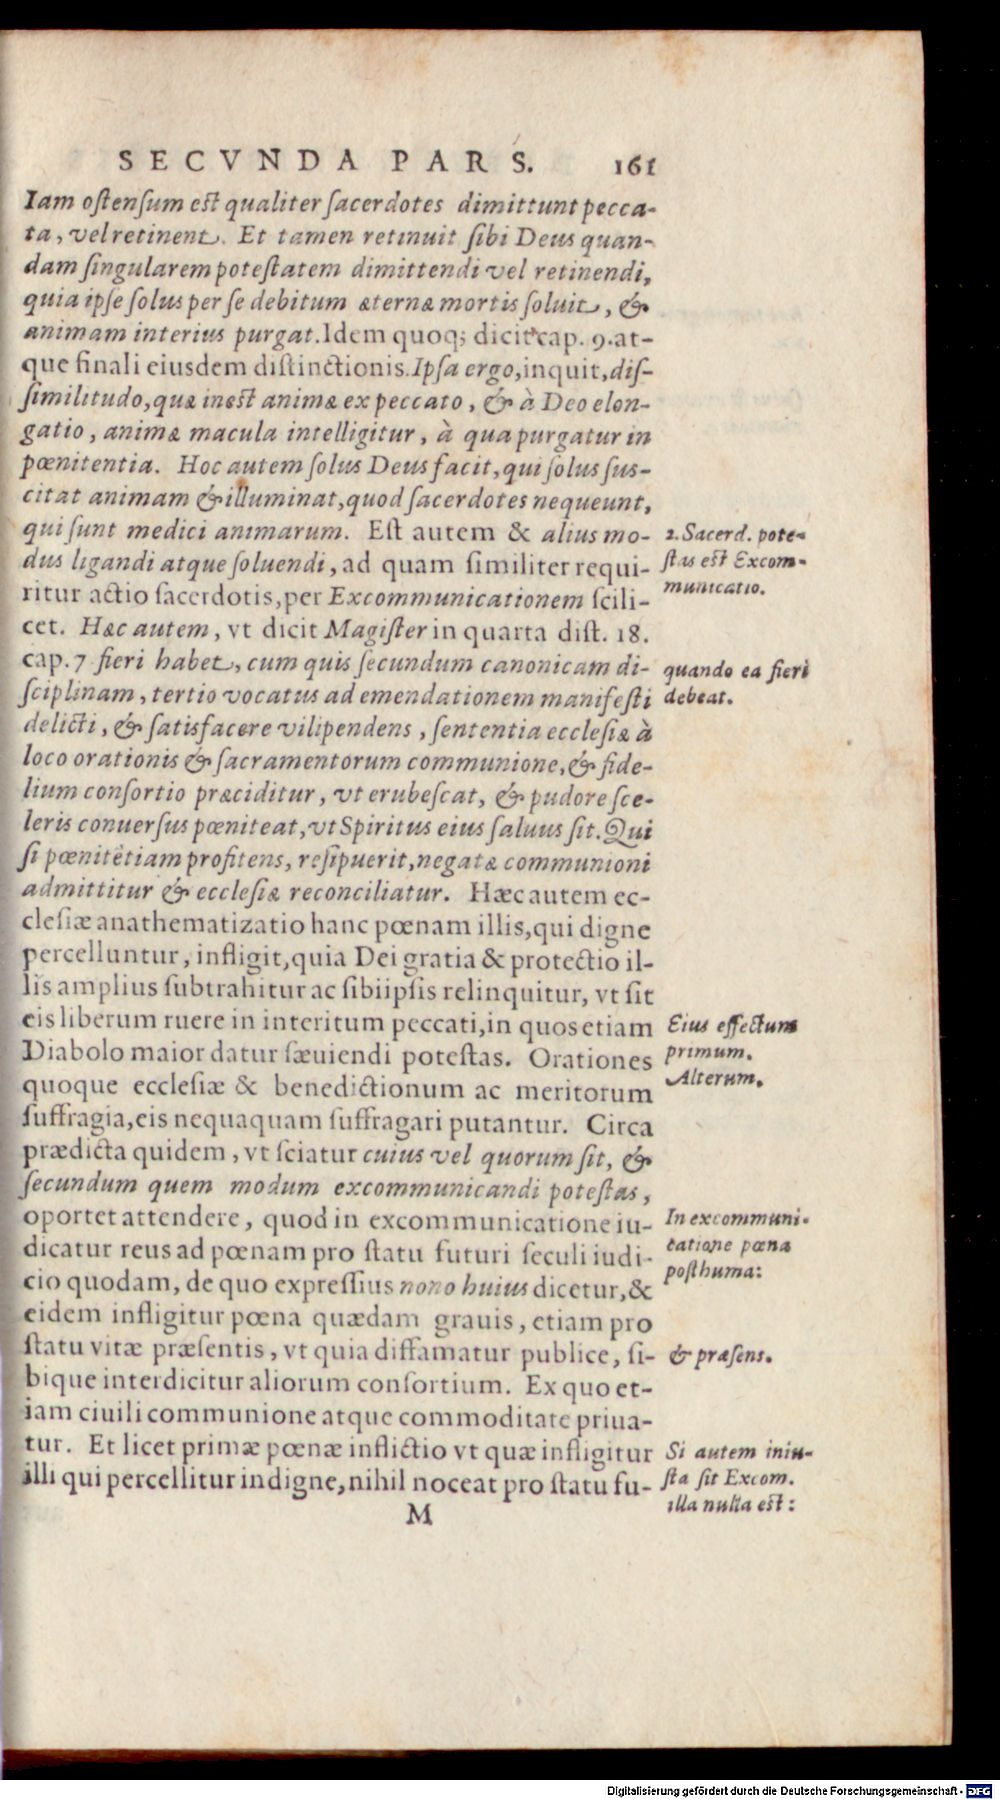 SECVNDA PARS. 161
Iam ostensum est qualiter sacerdotes dimittunt pecca-
ta, vel retinent. Et tamen retinuit sibi Deus quan-
dam singularem potestatem dimittendi vel retinendi,
quia ipse solus per se debitum æternæ mortis soluit, &
animam interius purgat. Idem quoq; dicit cap. 9. at-
que finali eiusdem distinctionis. Ipsa ergo, inquit, dis-
similitudo, quæ inest animæ ex peccato, & à Deo elon-
gatio, animæ macula intelligitur, à qua purgatur in
pœnitentia. Hoc autem solus Deus facit, qui solus sus-
citat animam & illuminat, quod sacerdotes nequeunt,
qui sunt medici animarum. Est autem & alius mo-
dus ligandi atque soluendi, ad quam similiter requi-
ritur actio sacerdotis, per Excommunicationem scili-
cet. Hæc autem, vt dicit Magister in quarta dist. 18.
cap. 7 fieri habet, cum quis secundum canonicam di-
sciplinam, tertio vocatus ad emendationem manifesti
delicti, & satisfacere vilipendens, sententia ecclesiæ à
loco orationis & sacramentorum communione, & fide-
lium consortio præciditur, vt erubescat, & pudore sce-
leris conuersus pœniteat, vt Spiritus eius saluus sit. Qui
si pœnitētiam profitens, resipuerit, negatæ communioni
admittitur & ecclesiæ reconciliatur. Hæc autem ec-
clesiæ anathematizatio hanc pœnam illis, qui digne
percelluntur, infligit, quia Dei gratia & protectio il-
lis amplius subtrahitur ac sibiipsis relinquitur, vt sit
eis liberum ruere in interitum peccati, in quos etiam
Diabolo maior datur sæuiendi potestas. Orationes
quoque ecclesiæ & benedictionum ac meritorum
suffragia, eis nequaquam suffragari putantur. Circa
prædicta quidem, vt sciatur cuius vel quorum sit, &
secundum quem modum excommunicandi potestas,
oportet attendere, quod in excommunicatione iu-
dicatur reus ad pœnam pro statu futuri seculi iudi-
cio quodam, de quo expressius nono huius dicetur, &
eidem infligitur pœna quædam grauis, etiam pro
statu vitæ præsentis, vt quia diffamatur publice, si-
bique interdicitur aliorum consortium. Ex quo et-
iam ciuili communione atque commoditate priua-
tur. Et licet primæ pœnæ inflictio vt quæ infligitur
illi qui percellitur indigne, nihil noceat pro statu fu-
M
2. Sacerd. pote-
stas est Excom-
municatio.
quando ea fieri
debeat.
Eius effectum
primum.
Alterum.
In excommuni-
catione pœna
posthuma:
& præsens.
Si autem iniu-
sta sit Excom.
illa nulla est:
Digitalisierung gefördert durch die Deutsche Forschungsgemeinschaft - DFG